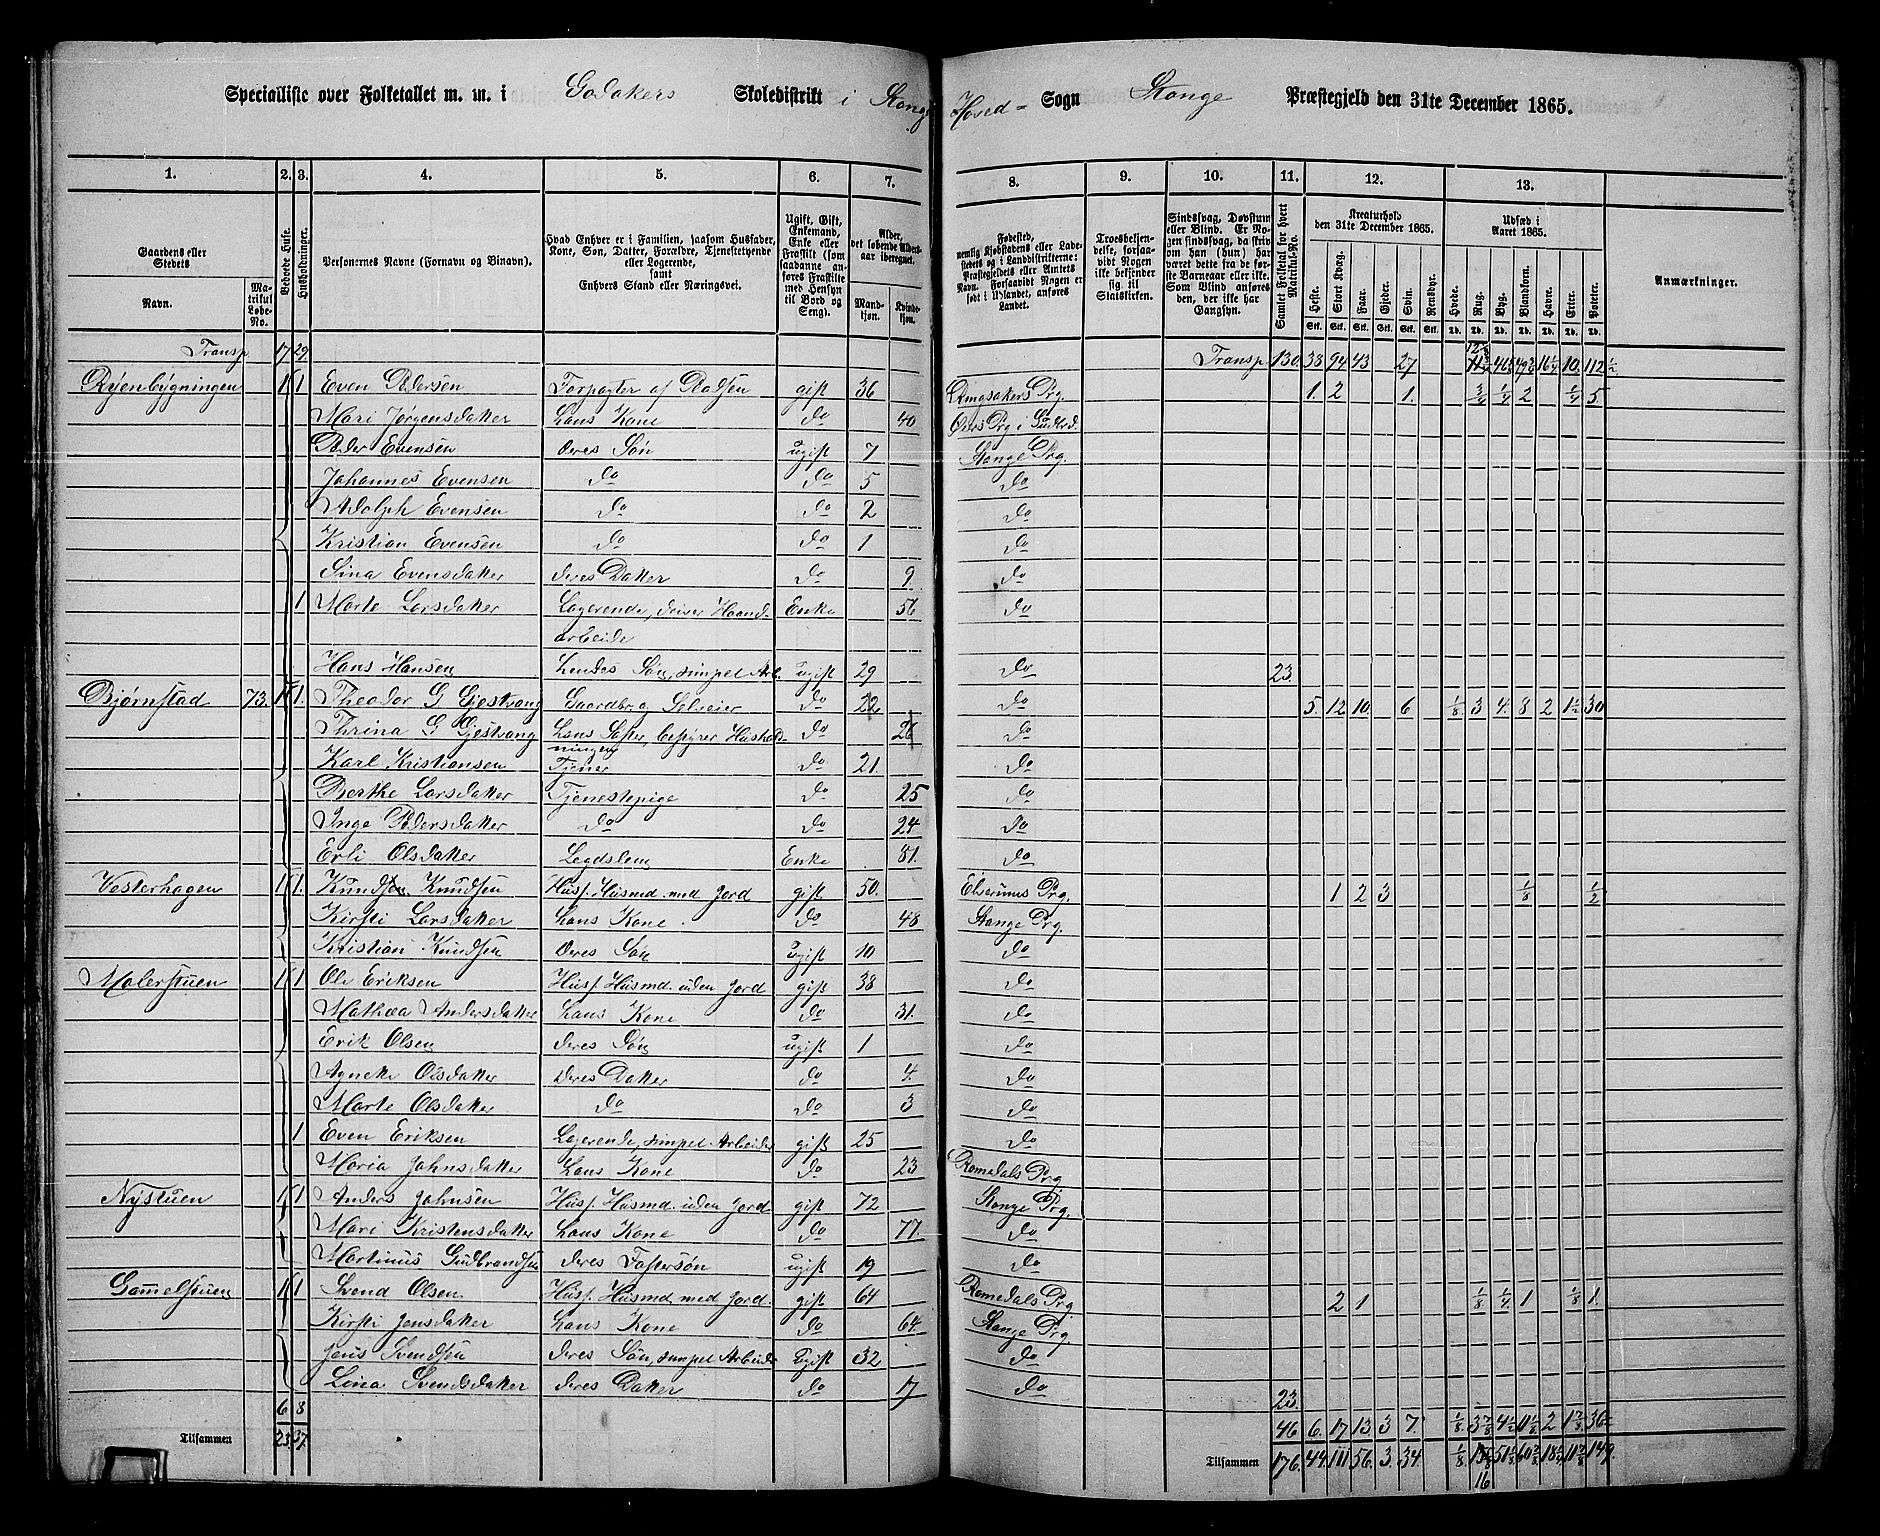 Specialliste over Folketallet m. m. i Godakers Skoledistrikt i Stange Hoved= Sogn Stange Præstegjeld den 31te December 1865.
1. 2. 3. 4. 5. 6. 7. 8. 9. 10. 11. 12. 13.
Gaardens eller Stedets
Navn.
Matrikul Løbe-No.
Beboede Huse.
Husholdninger.
Personernes Navne (Fornavn og Vinavn).
Hvad Enhver er i Familien, saasom Husfader, Kone, Søn, Datter, Forældre, Tjenestetyende eller Logerende, samt Enhvers Stand eller Næringsvei.
Ugift, Gift, Enkemand, Enke eller Fraskilt (som saadanne anføres Fraskilte med Hensyn til Bord og Seng).
Alder, det løbende Aldersaar iberegnet.
Mandkjøn. Kvindekjøn.
Fødested, nemlig Kjøbstadens eller Ladestedets og i Landdistrikterne: Præstegjeldets eller Amtets Navn. Forsaavidt Nogen er født i Udlandet, anføres Landet.
Troesbekjendelse, forsaavidt Nogen ikke bekjender sig til Statskirken.
Sindssvag, Døvstum eller Blind. Er Nogen sindssvag, da skrives om han (hun) har været dette fra de første Barneaar eller ikke. Som Blind anføres den, der ikke har Gangsyn.
Samlet Folketal for hvert Matrikul-No.
Kreaturhold den 31te December 1865.
Heste. Stort Kvæg. Faar. Gjeder. Svin. Rensdyr.
Udsæd i Aaret 1865.
Hvede. Rug. Byg. Blandkorn. Havre. Erter. Poteter.
Anmærkninger.
Transp 17 29 Transp 130 38 94 43 27 12 46 49 16¼ 10 112½
Røenbygningen 1 1 Even Pedersen Forpagter af Pladsen gift 36 Ringsakers Prg. 1. 2 1. ¾ ¼ 2 ¼ 5
Mari Jørgensdatter hans Kone do 40 Øiers Prg i Gudbd.
Peder Evensen deres Søn ugift 7 Stange Prg.
Johannes Evensen do do 5 do
Adolph Evensen do do 2 do
Kristian Evensen do do 1 do
Sina Evensdatter deres Datter do 9 do
1 Marte Larsdatter Logerende, driver Haand- Enke 56 do
arbeide
Hans Hansen hendes Søn, simpel Arb. Ugift 29 do 23.
Bjørnstad 73. 1 1. Theodor G Gjestvang Gaardbr. og Selveier do 22 do 5. 12 10 6 ⅛ 3 4 8 2 1½ 30
Thrina G Gjestvang hans Søster, bestyrer Hushold- do 26 do
ningen
Karl Kristiansen Tjener do 21. do
Berthe Larsdatter Tjenestepige do 25 do
Inge Pedersdatter do do 24 do
Erli Olsdatter Legdslem Enke 81. do
Vesterhagen 1 1. Knud Knudsen Husf. Husmd. med Jord gift 50. Elverums Prg. 1 2 3 ⅛ ½
Kirsti Larsdatter hans Kone. do 48 Stange Prg.
Kristian Knudsen deres Søn Ugift 10 do
Malerstuen 1 1 Ole Eriksen Husf. Husmd. uden Jord gift 38 do
Mathea Andersdatter hans Kone do 31. do
Erik Olsen deres Søn ugift 1 do
Agnete Olsdatter deres Datter do 4. do
Marte Olsdatter do do 3 do
1 Even Eriksen Logerende, simpel Arbeider gift 25 do
Maria Johnsdatter hans Kone do 23 Romedals Prg
Nystuen 1 1 Anders Johnsen Husf. Husmd. uden Jord. gift 72 Stange Prg.
Mari Kristensdatter hans Kone do 77. do
Martinus Gudbrandsen deres Fostersøn ugift 19 do
Gamelstuen 1 1 Svend Olsen Husf. Husmd. med Jord. gift 64 Romedals Prg 2 1 ⅛ ¼ 1 ⅛ 1.
Kirsti Jensdatter hans Kone do 64. Stange Prg.
Jens Svendsen deres Søn, simpel Arbeider Ugift 32 do
Lina Svendsdatter deres Datter do 17 do 23.
6 8 46 6. 17 13 3 7. ⅛ 3⅞ 4½ 11⅛ 2 1⅞ 36½
Tilsammen 23 37. Tilsammen 176. 44. 111 56. 3. 34. ⅛ 51 60 18¼ 11⅞ 149.
16